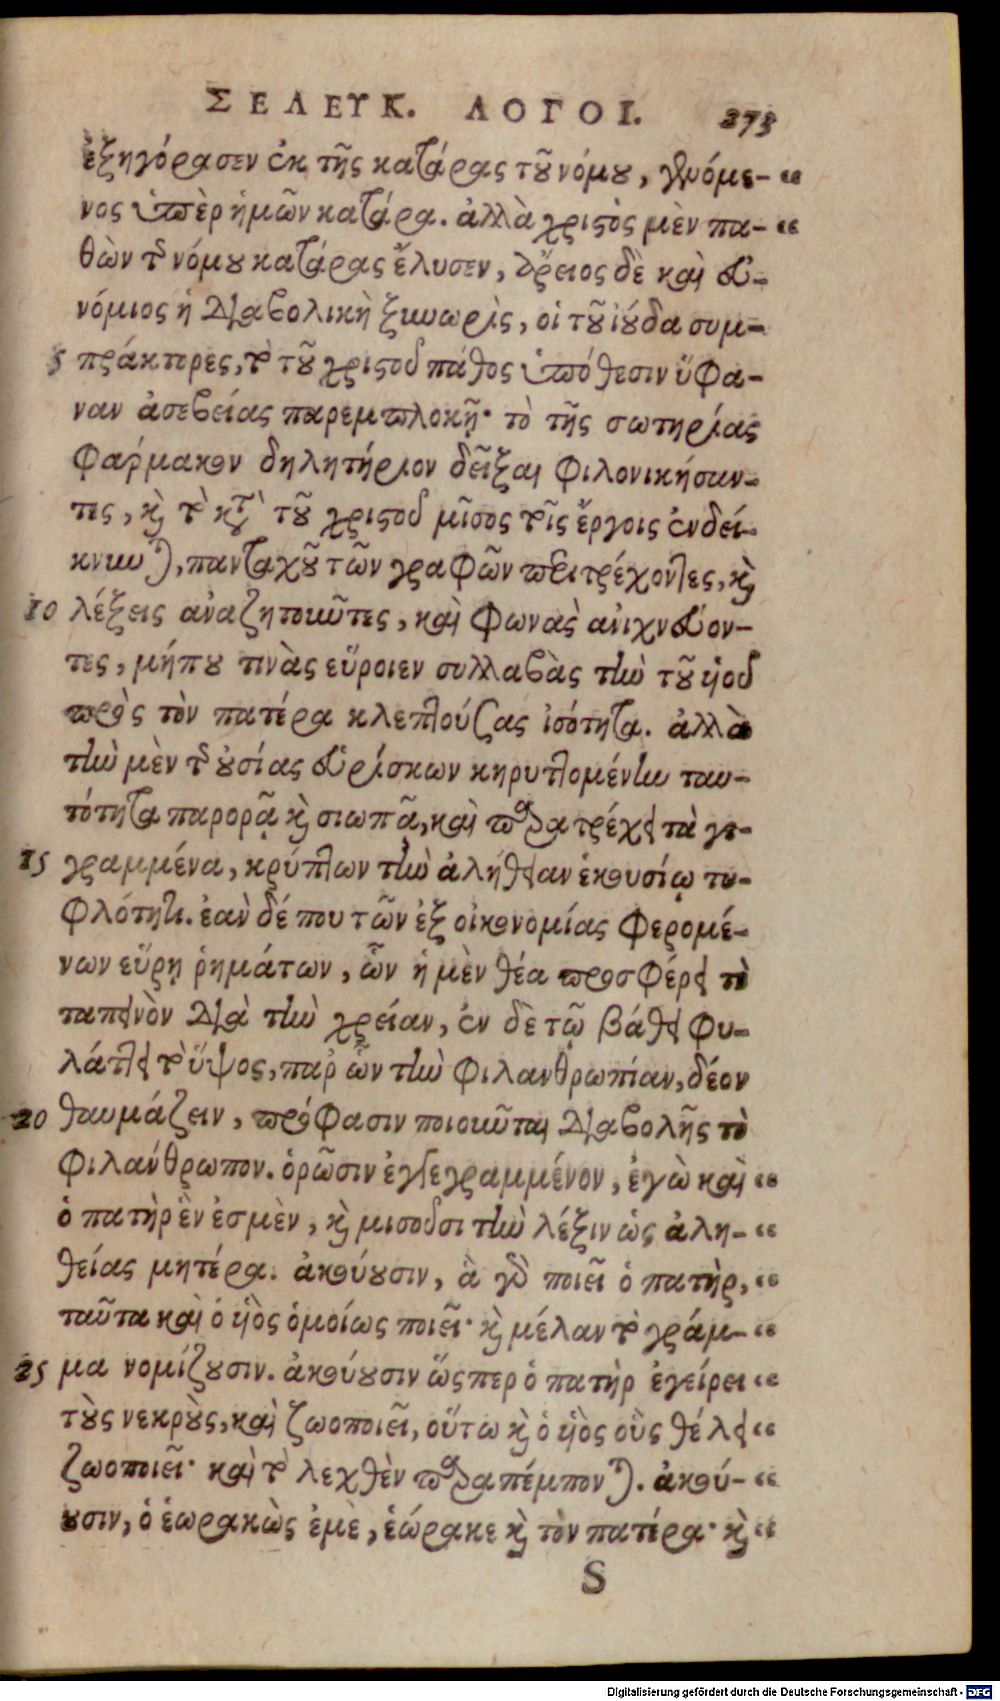 ΣΕΛΕΥΚ. ΛΟΓΟΙ. 273
ἐξηγόρασεν ἐκ τῆς κατάρας τοῦ νόμου, γενόμε- “
νος ὑπὲρ ἡμῶν κατάρα. ἀλλὰ χριστὸς μὲν πα- “
θὼν τὸ νόμου κατάρας ἔλυσεν, ἄρειος δὲ καὶ εὐ-
νόμιος ἡ διαβολικὴ ξυνωρὶς, οἱ τοῦ ἰούδα συμ-
5 πράκτορες, τὸ τοῦ χριστοῦ πάθος ὑπόθεσιν ὕφα-
ναν ἀσεβείας παρεμπλοκῇ· τὸ τῆς σωτηρίας
φάρμακον δηλητήριον δεῖξαι φιλονικήσαν-
τες, καὶ τὸ κατὰ τοῦ χριστοῦ μῖσος τοῖς ἔργοις ἐνδεί-
κνυνται, πανταχοῦ τῶν γραφῶν περιτρέχοντες, καὶ
10 λέξεις ἀναζητοῦντες, καὶ φωνὰς ἀνιχνεύον-
τες, μήπου τινὰς εὕροιεν συλλαβὰς τὴν τοῦ υἱοῦ
πρὸς τὸν πατέρα κλεπτούσας ἰσότητα. ἀλλὰ
τὴν μὲν τῆς οὐσίας εὑρίσκων κηρυττομένην ταυ-
τότητα παρορᾷ καὶ σιωπᾷ, καὶ παρατρέχει τὰ γε-
15 γραμμένα, κρύπτων τὴν ἀλήθειαν ἑκουσίῳ τυ-
φλότητι. ἐὰν δέ που τῶν ἐξ οἰκονομίας φερομέ-
νων εὕρῃ ῥημάτων, ὧν ἡ μὲν θέα προσφέρει τὸ
ταπεινὸν διὰ τὴν χρείαν, ἐν δὲ τῷ βάθει φυ-
λάττει τὸ ὕψος, παρ ὧν τὴν φιλανθρωπίαν, δέον
20 θαυμάζειν, πρόφασιν ποιοῦνται διαβολῆς τὸ
φιλάνθρωπον. ὁρῶσιν ἐγγεγραμμένον, ἐγὼ καὶ “
ὁ πατὴρ ἓν ἐσμὲν, καὶ μισοῦσι τὴν λέξιν ὡς ἀλη- “
θείας μητέρα. ἀκούουσιν, ἃ γὰρ ποιεῖ ὁ πατὴρ, “
ταῦτα καὶ ὁ υἱὸς ὁμοίως ποιεῖ· καὶ μέλαν τὸ γράμ- “
25 μα νομίζουσιν. ἀκούουσιν ὥσπερ ὁ πατὴρ ἐγείρει “
τοὺς νεκροὺς, καὶ ζωοποιεῖ, οὕτω καὶ ὁ υἱὸς οὓς θέλει “
ζωοποιεῖ· καὶ τὸ λεχθὲν παραπέμπονται. ἀκού- “
ουσιν, ὁ ἑωρακὼς ἐμὲ, ἑώρακε καὶ τὸν πατέρα· καὶ “
S
Digitalisierung gefördert durch die Deutsche Forschungsgemeinschaft - DFG